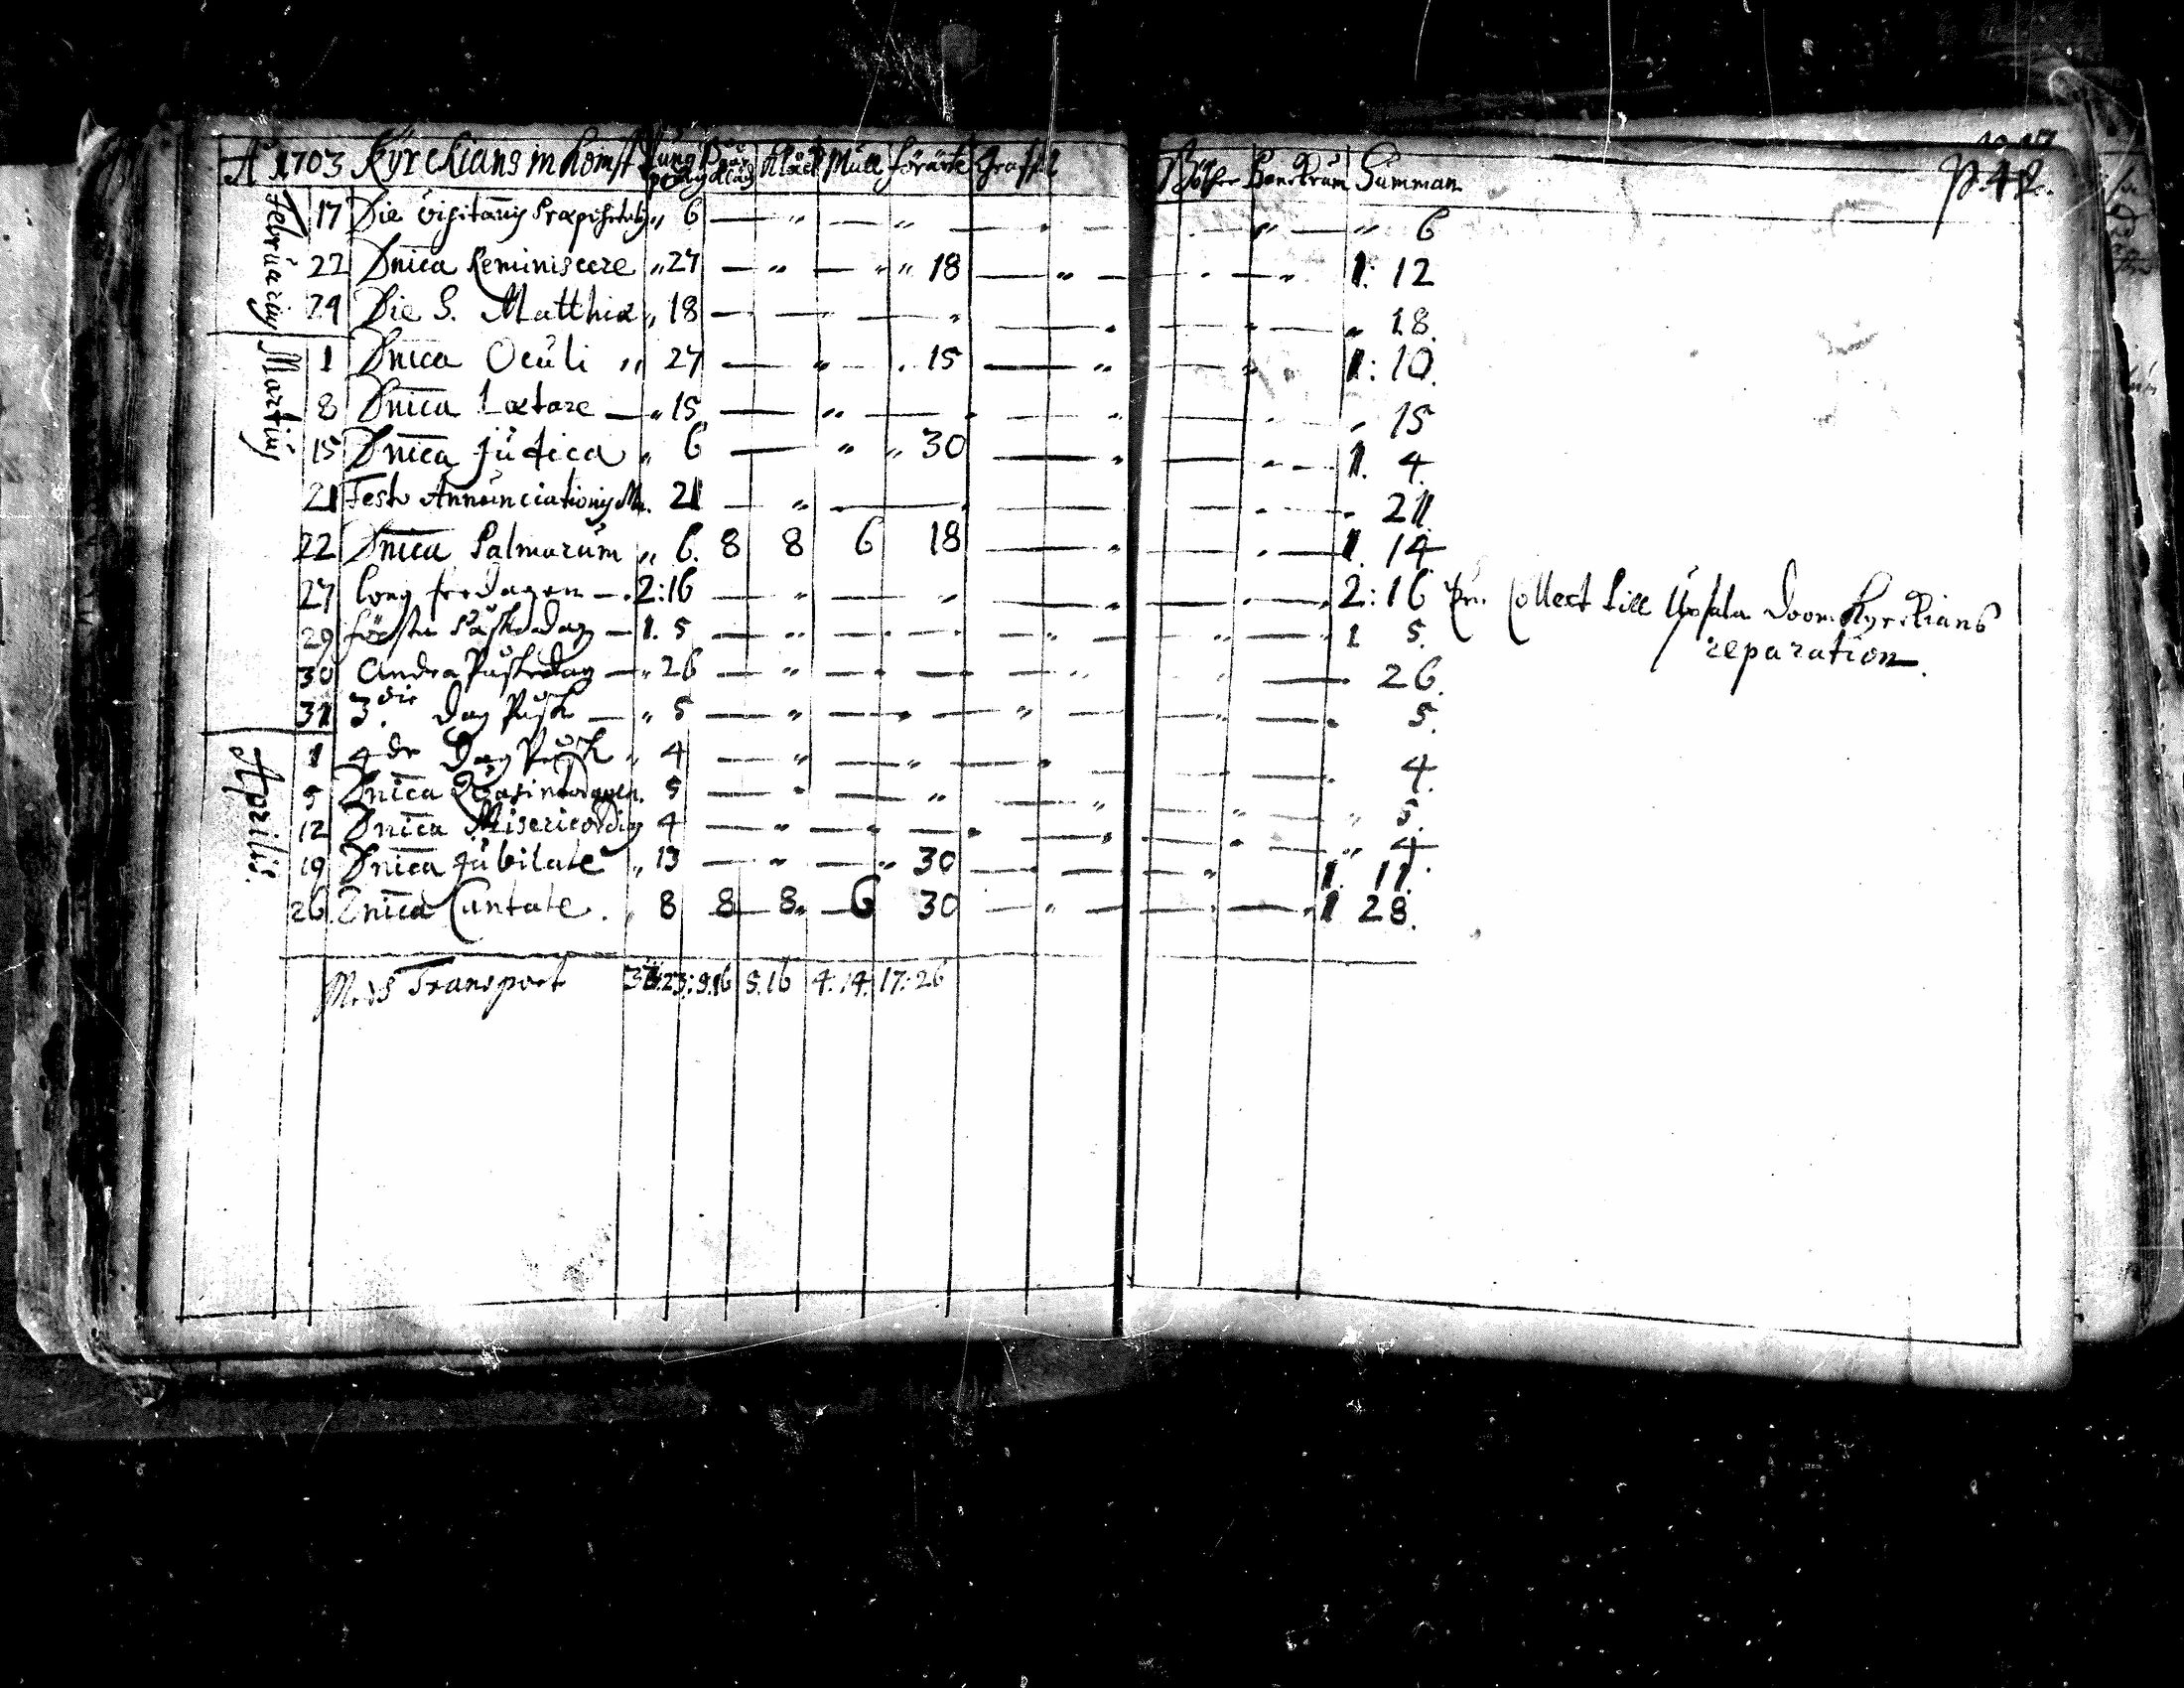 A 1703 Kyrckians inkomst Pung Bår Klåck Mull förährt Grafst. Böcker Benckrum Summan p. 42.
Februarius 17 Die visitationis „ 6 — „ — „ — „ 6
22 Dnica Reminiscere „ 27 — „ — „ „ 18 — „ — „ 1: 12
24 Die S. Matthiæ „ 18 — — — „ — „ 18.
Martius 1 Dnica Oculi „ 27 — „ — . 15 — „ — „ 1: 10.
8 Dnica Lætare — „ 15 — „ — — „ 15
15 Dnica Judica „ 6 — „ „ 30 — „ — 1. 4.
21 Festo Annunciationis M. 21 — „ — — — 21
22 Dnica Palmarum „ 6. 8 8 6 18 — „ — 1. 14
27 Long fredagen — . 2:16 — „ — „ — „ — 2:16 Collect till Upsala Doom Kyrckians
reparation.
29 första Påskedag — 1. 5 — „ — — „ — „ 1 5.
30 Andra Påskedag — „ 26 — „ — — „ — 26.
31 3die dag Påsk — „ 5 — „ — „ — 5.
Aprilis. 1 4de Dag Påsk „ 4 — „ — „ — 4.
5 Dnica Qvasimodogen. 5 — „ — „ — „ 5.
12 Dnica Misericordias 4 — „ — „ — „ 4.
19 Dnica Jubilate „ 13 — „ — „ 30 — „ 1. 11.
26. Dnica Cantate. „ 8 8 8 6 30 — „ — 1 28.
Transport 23: 9.16 5.16 4.14. 17:26